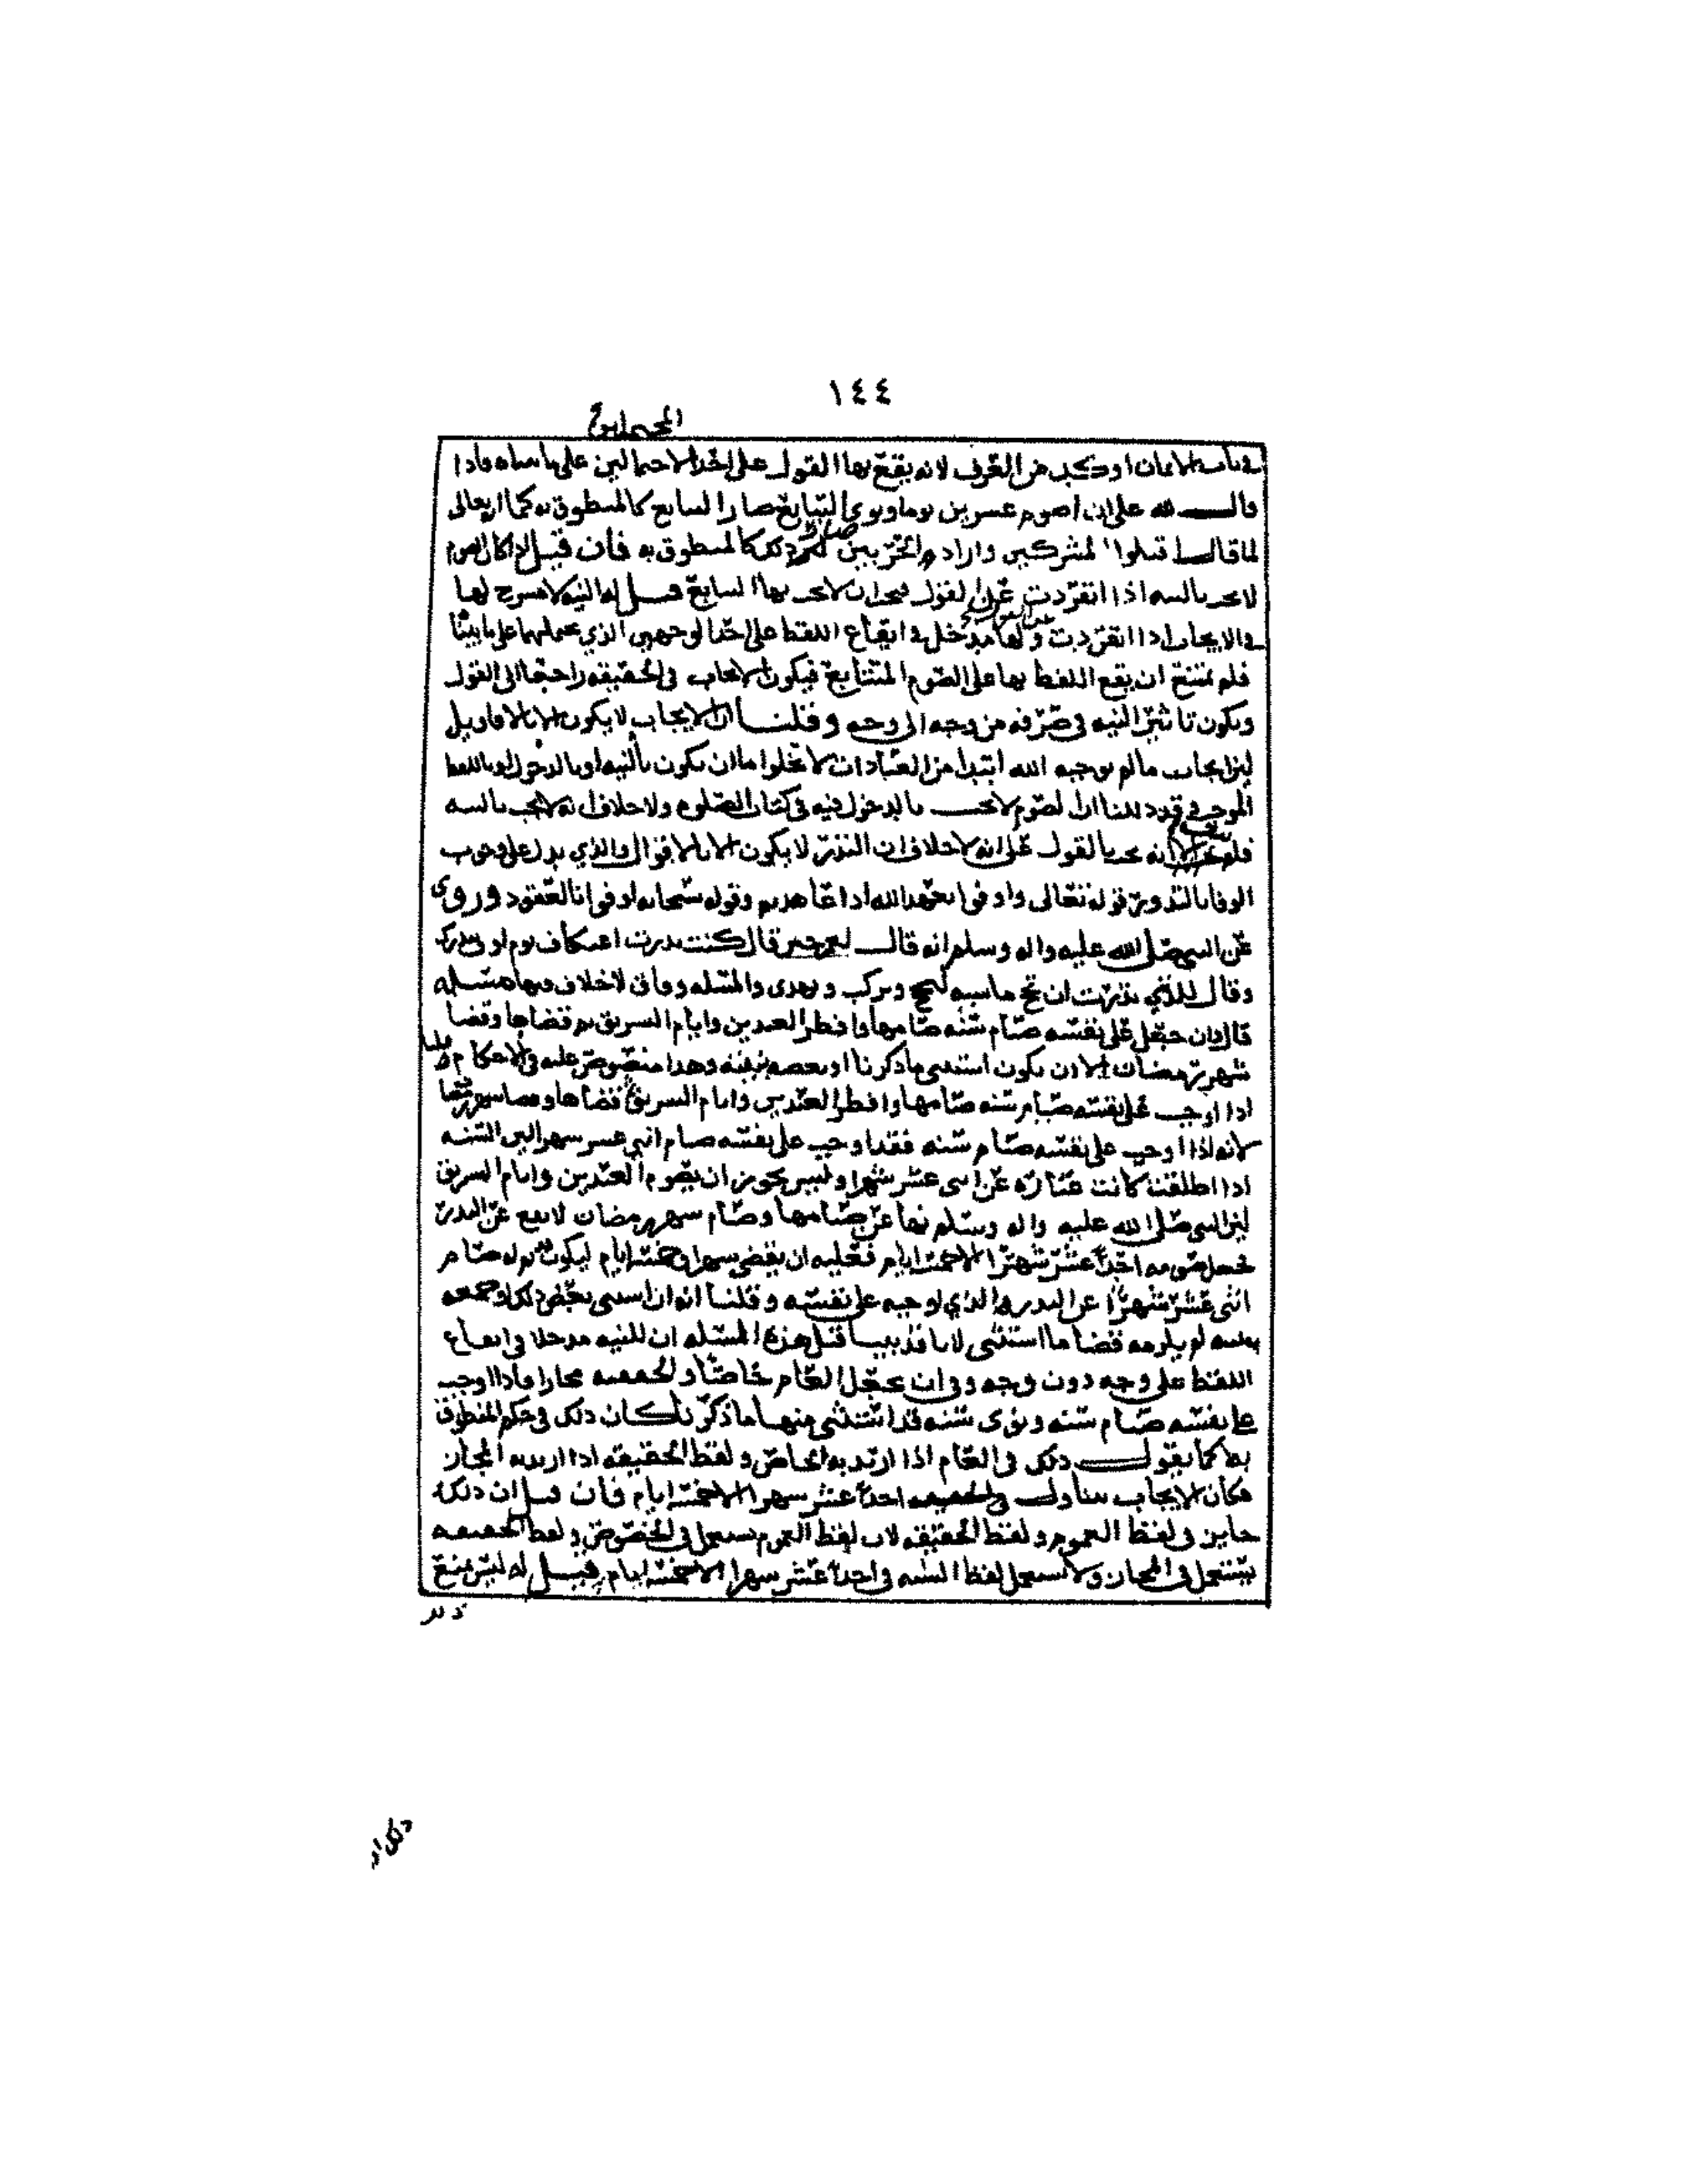 ١٤٤
المحتملين
في باب الايمان اوكد من العرف لانه يقع بها القول على احد الاحتمالين على ما بيناه فاذا
قال لله علي ان اصوم عشرين يوما ونوى التتابع صار التتابع كالمنطوق به كما ان الله تعالى
لما قال اقتلوا المشركين واراد الحربيين صار ذلك كالمنطوق به فان قيل اذا كان الصوم
لا يجب بالنيه اذا انفردت عن القول فيجب ان لا يجب بها التتابع قيل له النيه لا مسرح لها
في الايجاب اذا انفردت عن القول ولها مدخل في ايقاع اللفظ على احد الوجهين الذي يحملهما على ما بينا
فلم يمتنع ان يقع اللفظ بها على الصوم المتتابع فيكون الايجاب في الحقيقه راجعا الى القول
ويكون تاثير النيه في صرفه من وجه الى وجه وقلنا ان الايجاب لا يكون الا بالاقاويل
لان ايجاب ما لم يوجبه الله ابتدا من العبادات لا يخلوا ما ان يكون بالنيه او بالدخول او باللفظ
الموجب وقد دللنا ان الصوم لا يجب بالدخول فيه في كتاب الصلوه ولا خلاف انه لا يجب بالنيه
فلم يبق الا انه يجب بالقول على انه لا خلاف ان النذر لا يكون الا بالاقوال والذي يدل على وجوب
الوفا بالنذور قوله تعالى واوفوا بعهد الله اذا عاهدتم وقوله سبحانه اوفوا بالعقود وروي
عن النبي صلى الله عليه واله وسلم انه قال لعمر حين قال كنت نذرت اعتكاف يوم اوف بنذرك
وقال للذي نذرت ان تحج ماشيه لتحج وتركب وتهدى والمسئله وفاق لا خلاف فيها مسئله
قال وان جعل على نفسه صيام سنه صامها وافطر العيدين وايام التشريق ثم قضاها وقضا
شهر رمضان الا ان يكون استثنى ما ذكرنا او بعضه بنيته وهذا منصوص عليه في الاحكام قلنا
اذا اوجب على نفسه صيام سنه صامها وافطر العيدين وايام التشريق قضاها وصيام شهر رمضان
لانه اذا اوجب على نفسه صيام سنه فقد اوجب على نفسه صيام اثنى عشر شهرا لان السنه
اذا اطلقت كانت عباره عن اثنى عشر شهرا وليس يجوز ان يصوم العيدين وايام التشريق
لان النبي صلى الله عليه واله وسلم نها عن صيامها وصيام شهر رمضان لا يقع عن النذر
فحصل صومه احد عشر شهرا الا خمسة ايام فعليه ان يقضي شهرا وخمسة ايام ليكون قد تم له صيام
اثنى عشر شهرا عن النذر الذي اوجبه على نفسه وقلنا انه ان استثنى بعض ذلك او جميعه
بنيته لم يلزمه قضا ما استثنى لانا قد بينا قبل هذه المسئله ان للنيه مدخلا في ايقاع
اللفظ على وجه دون وجه وفي ان يجعل العام خاصا والحقيقه مجازا فاذا اوجب
على نفسه صيام سنه ونوى سنه قد استثنى منها ما ذكرنا كان ذلك في حكم المنطوق
به كما يقول ذلك في العام اذا اريد به الخاص ولفظ الحقيقه اذا اريد به المجاز
فكان الايجاب يتناول في الحقيقه احد عشر شهرا الا خمسة ايام فان قيل ان ذلك
جايز في لفظ العموم ولفظ الحقيقه لان لفظ العموم يستعمل في الخصوص ولفظ الحقيقه
يستعمل في المجاز ولا يستعمل لفظ السنه في احد عشر شهرا الا خمسة ايام قيل له ليس يمنع